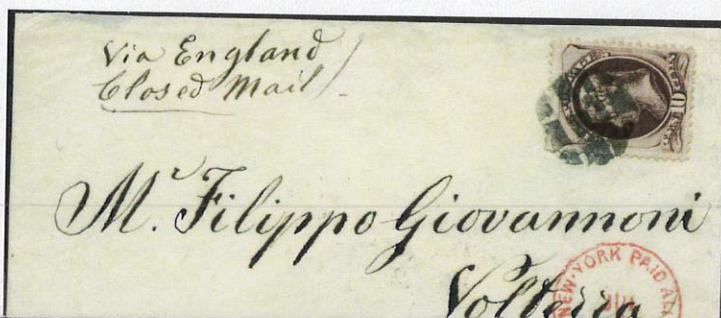 Via England
Closed Mail
Mr. Filippo Giovannoni
Volterra
NEW-YORK PAID ALL